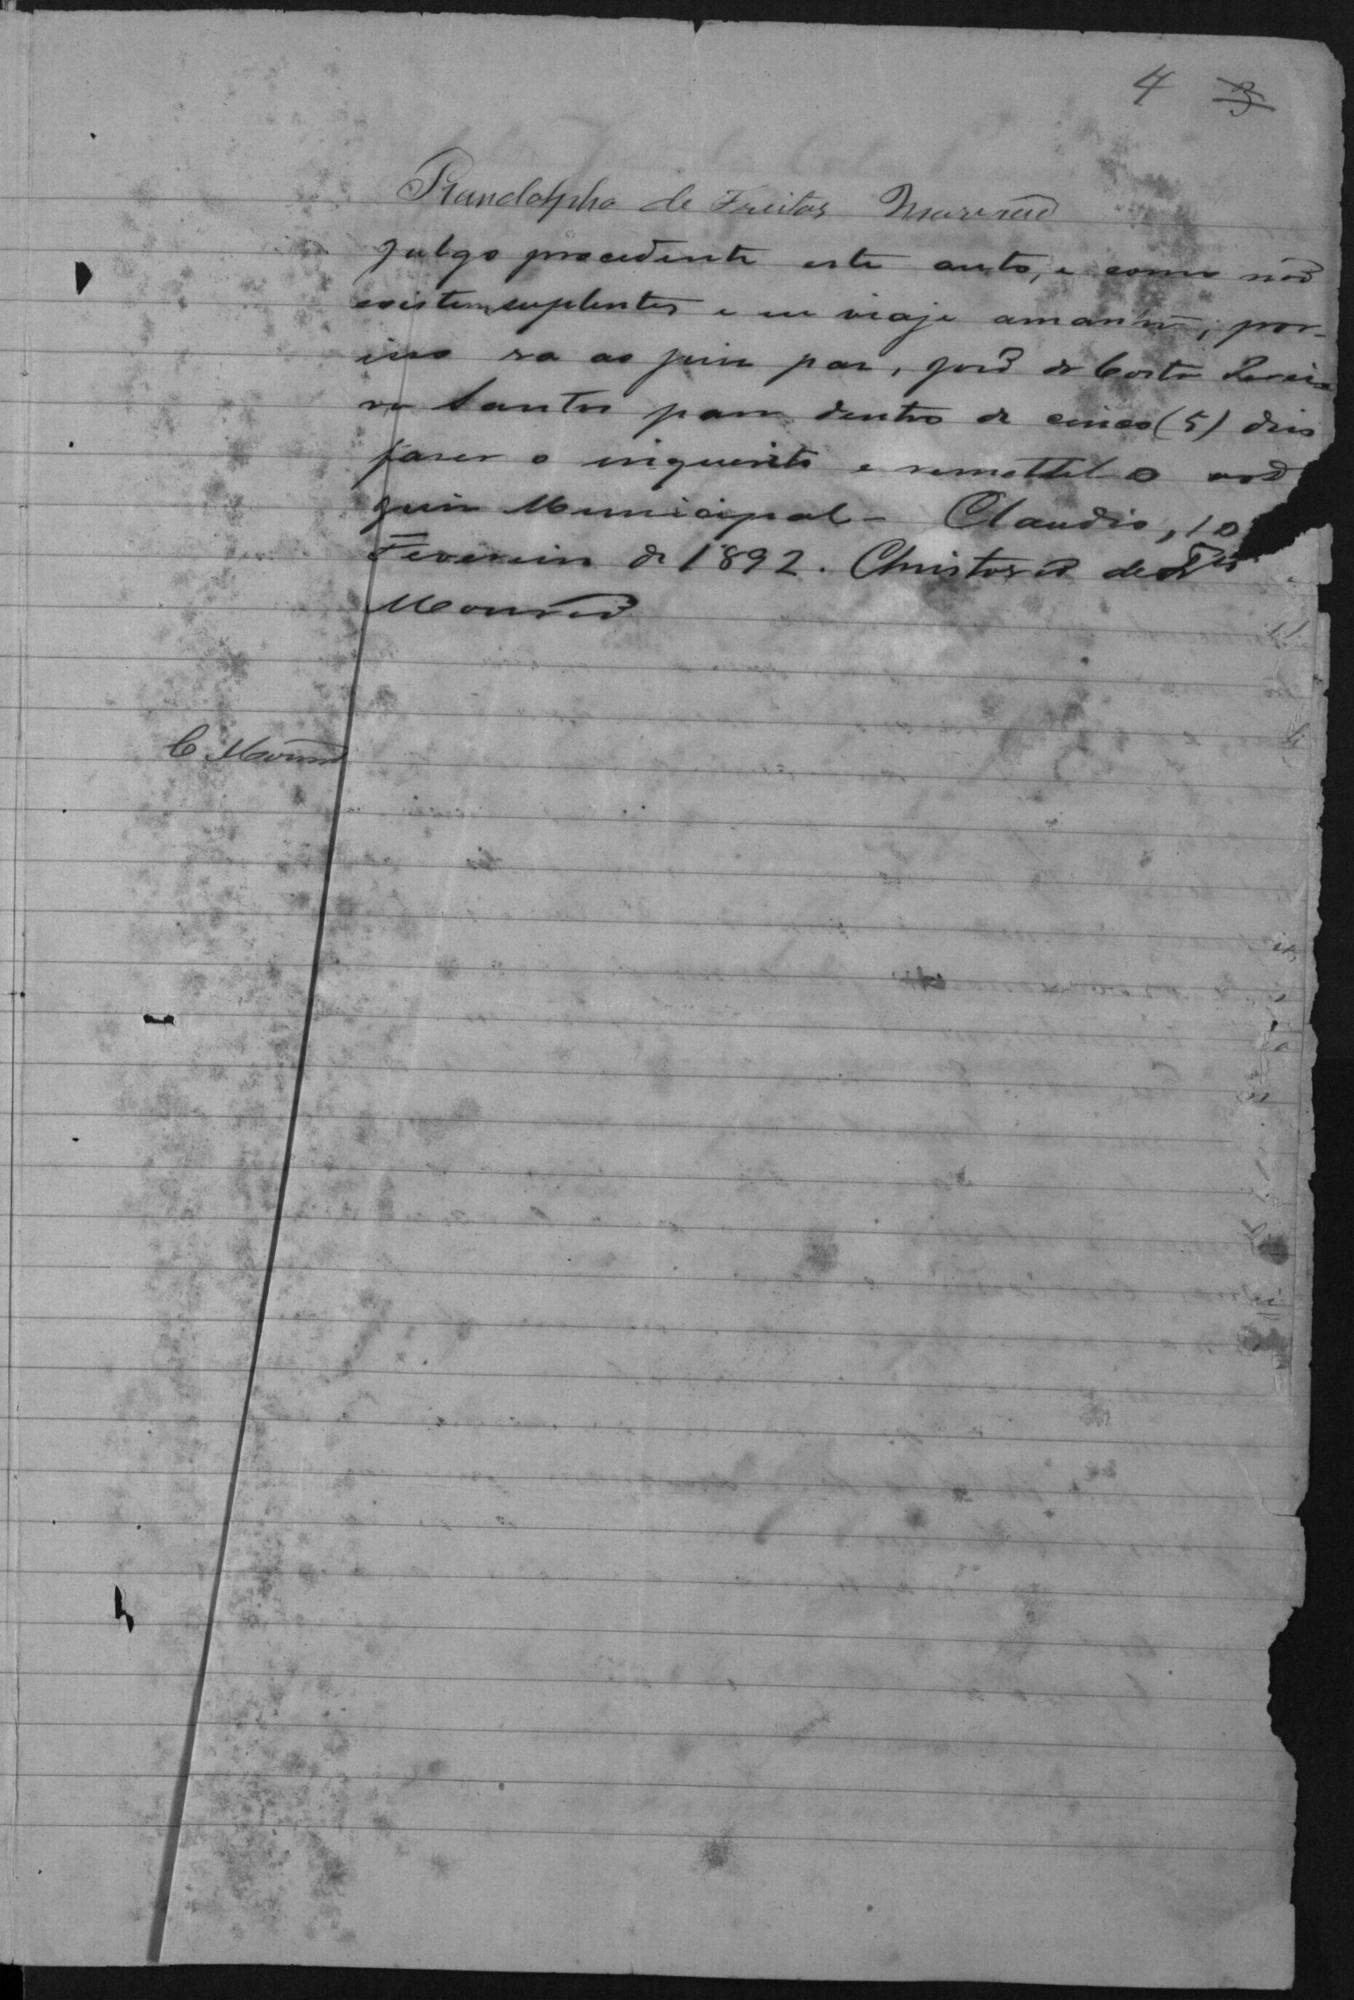 4 3
Randolpho de Freitas Mourão
Julgo procedente este auto, e como não
existem suplentes e eu viaje amanhã, por-
isso va ao juiz paz, José da Costa Perei-
ra Santos para dentro de cinco (5) dias
faser o inquerito e remettel o ao
juiz Municipal - Claudio, 10
Fevereiro de 1892. Christovão de Ftas
Mourão
C Mourão